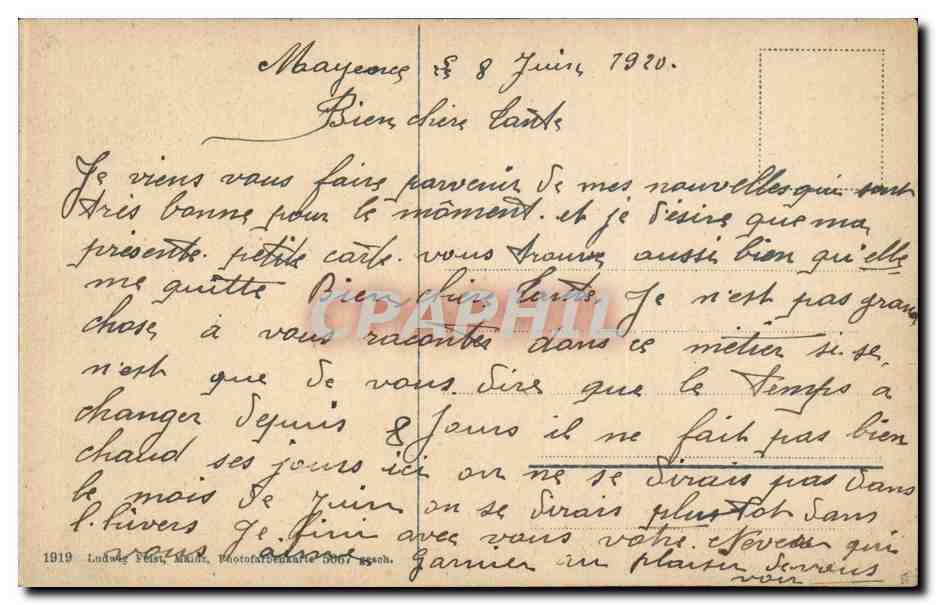 Mayence le 8 Juin 1920.
Bien chere tante
Je viens vous faire parvenir de mes nouvelles qui sont
très bonne pour le môment. et je désire que ma
présente. petite carte. vous trouve aussi bien qu'elle
me quitte Bien chere tante, Je n'est pas grand
chose, à vous raconter dans ce métier si se,
n'est que de vous dire que le temps à
changer depuis 8 Jours il ne fait pas bien
chaud ses jours ici on ne se dirais pas dans
le mois de Juin on se dirais plustot dans
l'hivers Je fini avec vous votre. Neveu qui
vous aime Garnier au plaisir de vous
voir
CPAPHIL
1919 Ludwig Feist, Mainz, Photofarbenkarte 5067 gesch.